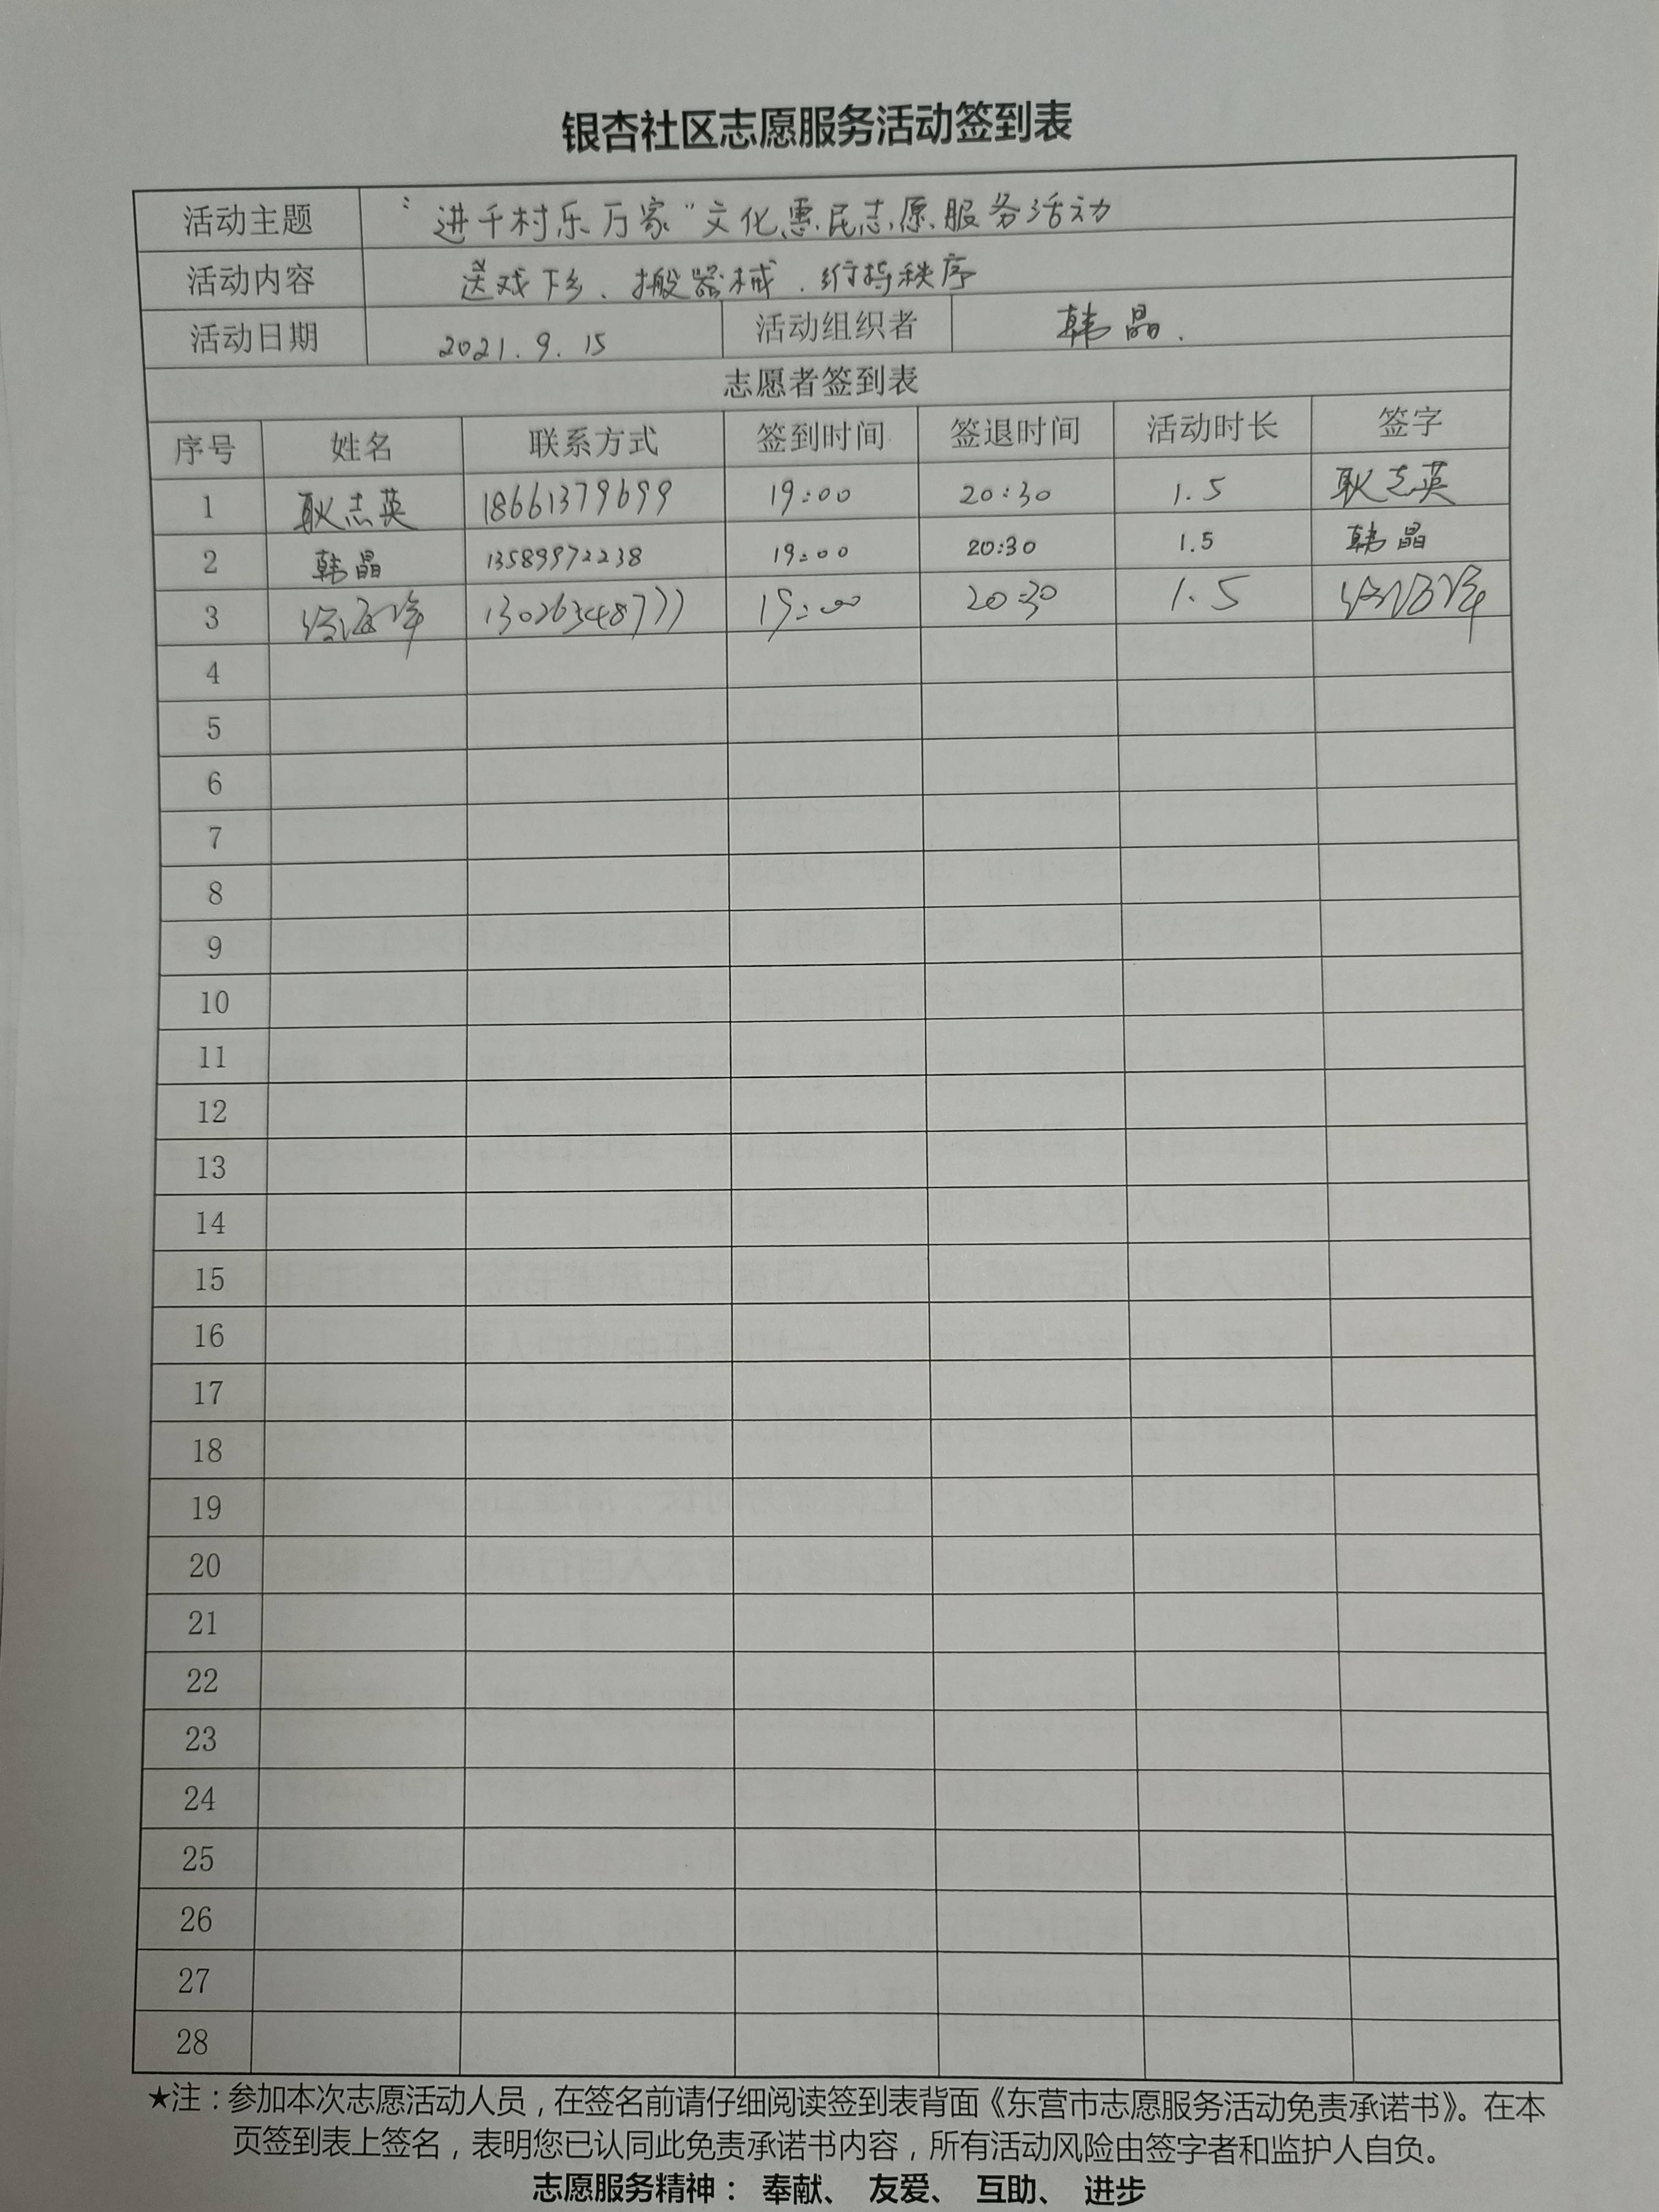 银杏社区志愿服务活动签到表
活动主题 “进千村乐万家”文化惠民志愿服务活动
活动内容 送戏下乡、搬器械、维持秩序
活动日期 2021.9.15 活动组织者 韩晶.
志愿者签到表
序号 姓名 联系方式 签到时间 签退时间 活动时长 签字
1 耿志英 18661379699 19:00 20:30 1.5 耿志英
2 韩晶 13589972238 19:00 20:30 1.5 韩晶
3 13026348777 19:00 20:30 1.5
4
5
6
7
8
9
10
11
12
13
14
15
16
17
18
19
20
21
22
23
24
25
26
27
28
★注：参加本次志愿活动人员，在签名前请仔细阅读签到表背面《东营市志愿服务活动免责承诺书》。在本
页签到表上签名，表明您已认同此免责承诺书内容，所有活动风险由签字者和监护人自负。
志愿服务精神： 奉献、 友爱、 互助、 进步